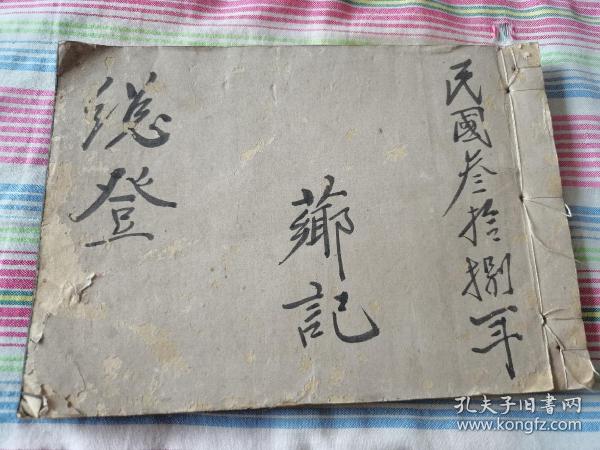 民國叁拾捌年
薌記
總登
孔夫子旧書网
www.kongfz.com